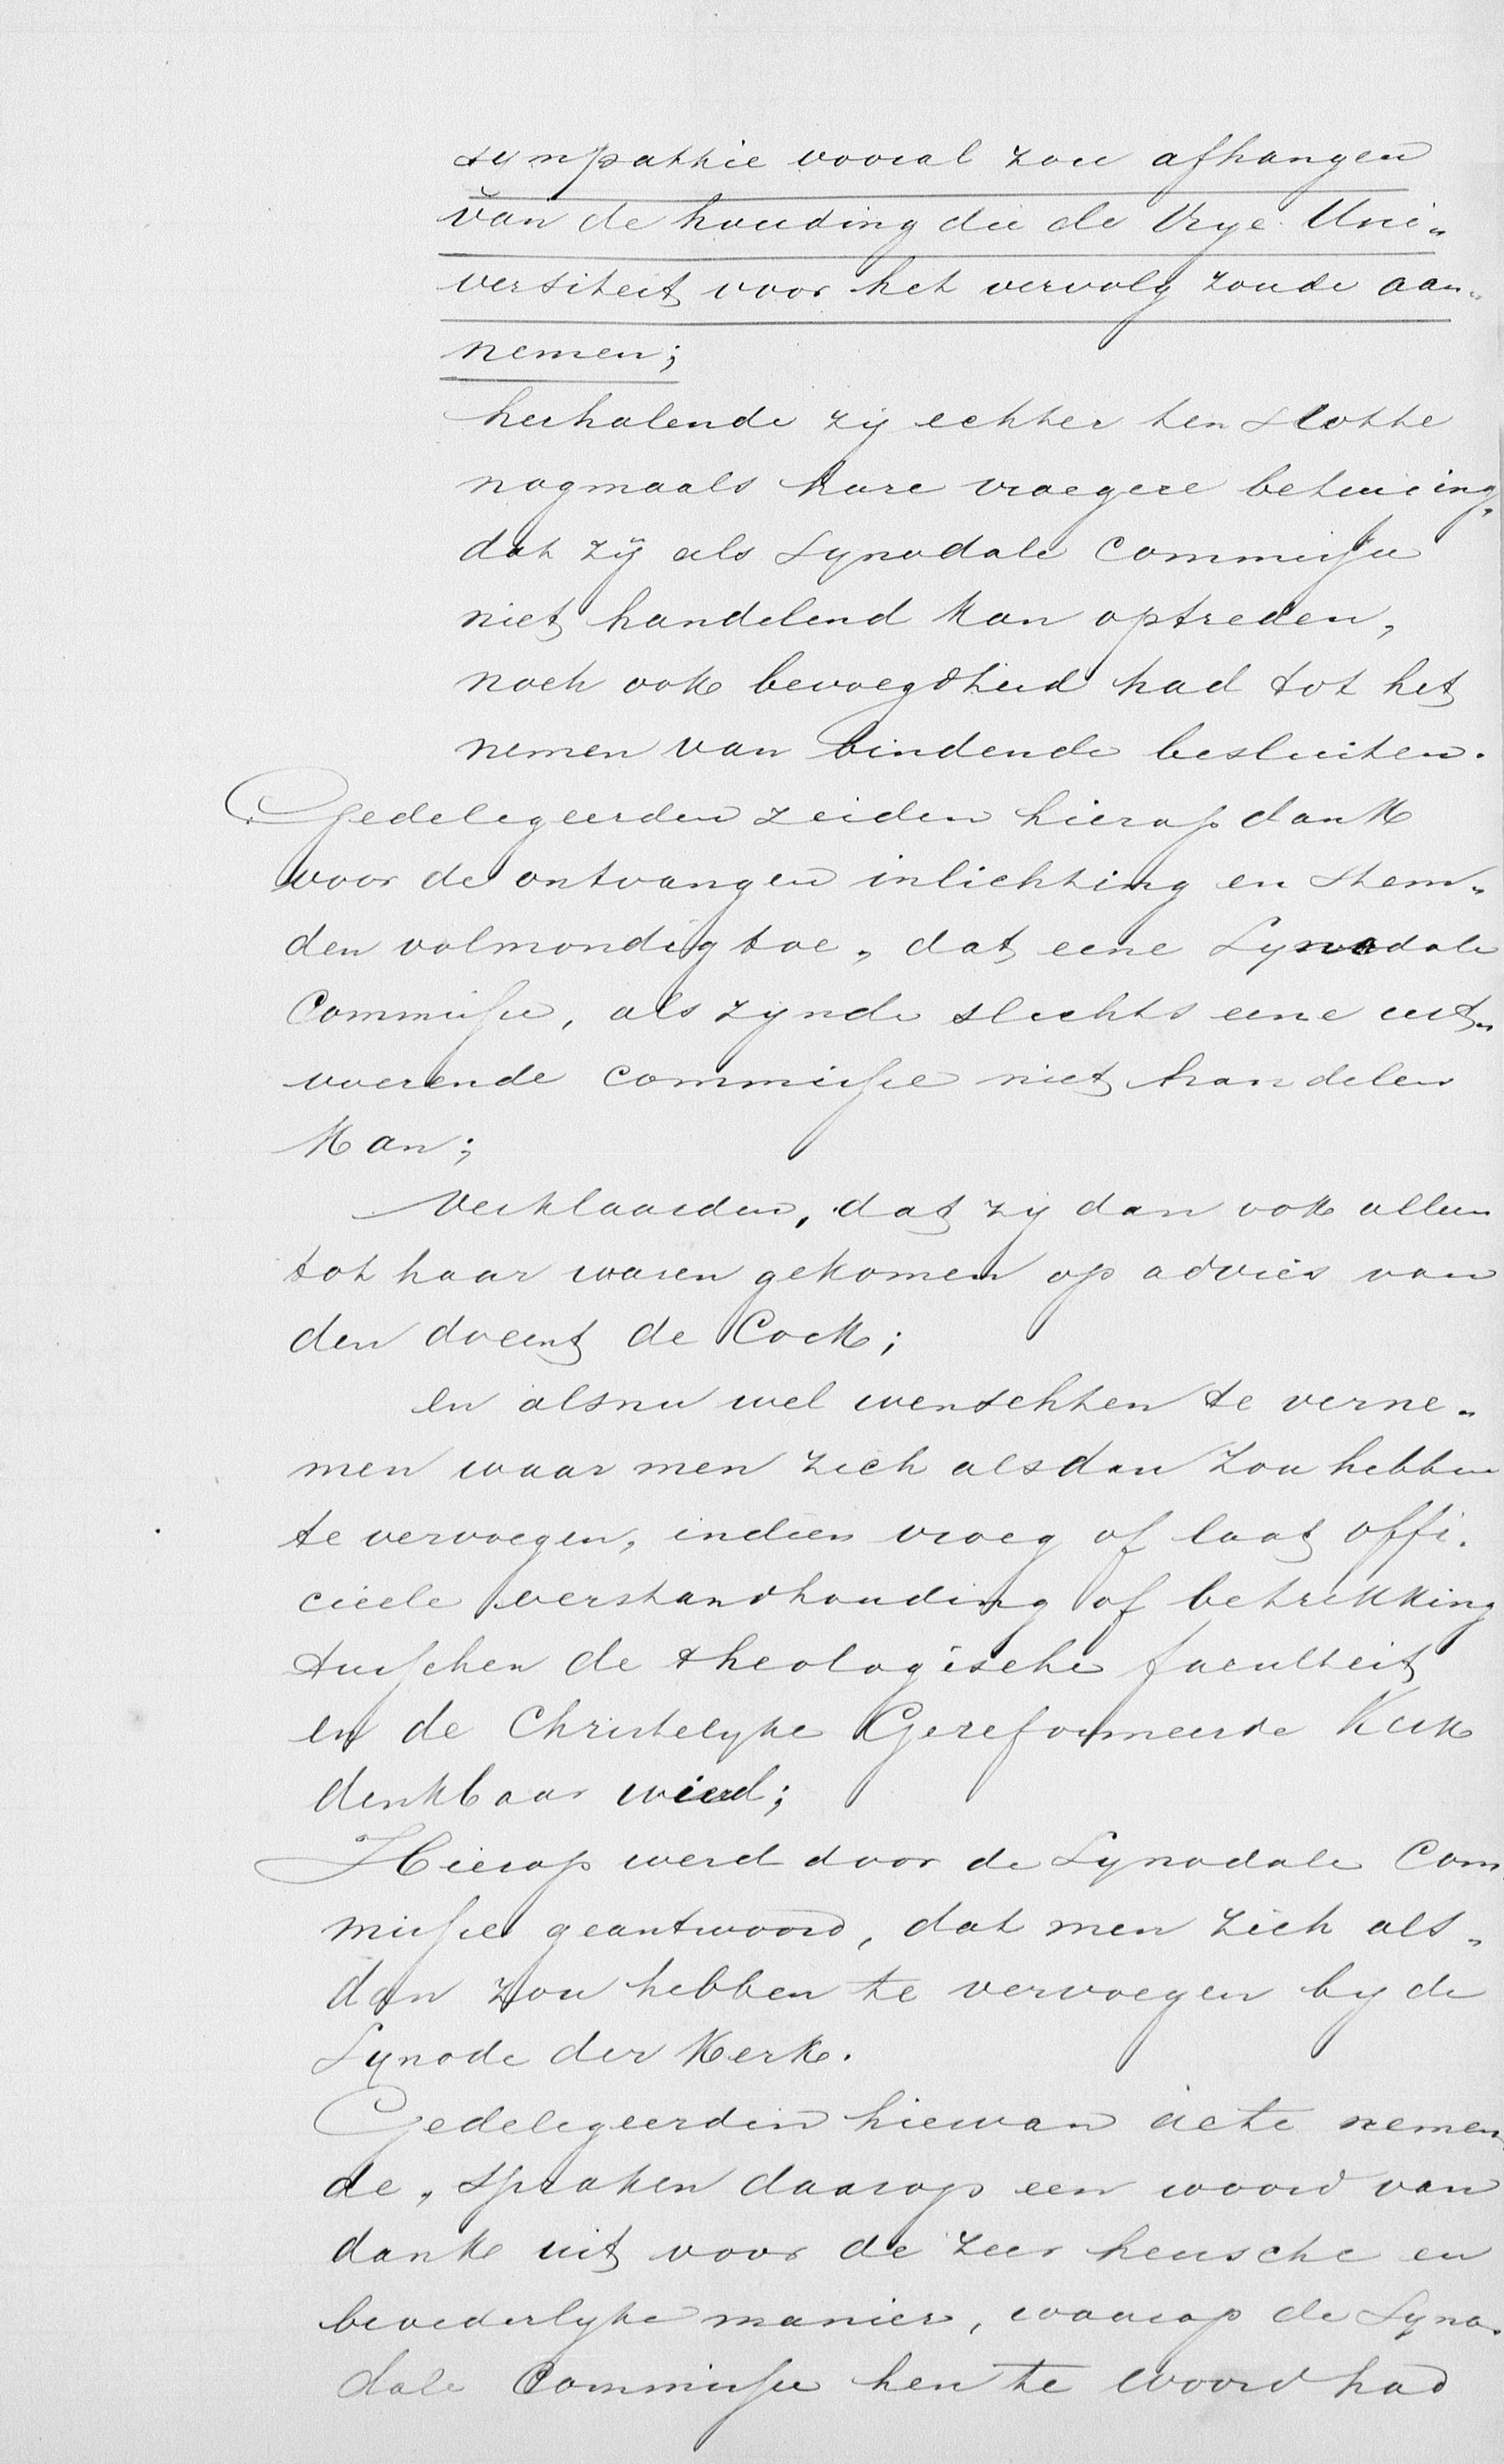 sympathie vooral zou afhangen
van de houding die de Vrye Uni„
versiteit voor het vervolg zoude aan„
nemen;
herhalende zij echter ten slotte
nogmaals hare vroegere betuiging,
dat zij als Synodale Commissie
niet handelend kan optreden,
noch ook bevoegdheid had tot het
nemen van bindende besluiten.
Gedelegeerden zeiden hierop dank
voor de ontvangen inlichting en stem„
den volmondig toe, dat eene Synodale
Commissie, als zynde slechts eene uit„
voerende commissie niet handelen
kan;
Verklaarden, dat zy dan ook alleen
tot haar waren gekomen op advies van
den docent de Cock;
en alsnu wel wenschten te verne„
men waar men zich alsdan zou hebben
te vervoegen, indien vroeg of laat offi„
cieele verstandhouding of betrekking
tusschen de theologische faculteit
en de Christelyke Gereformeerde Kerk
denkbaar wierd;
Hierop werd door de Synodale Com„
missie geantwoord, dat men zich als„
dan zou hebben te vervoegen by de
Synode der Kerk.
Gedelegeerden hiervan acte nemen„
de, spraken daarop een woord van
dank uit voor de zeer heusche en
broederlyke manier, waarop de Syno„
dale Commissie hen te woord had